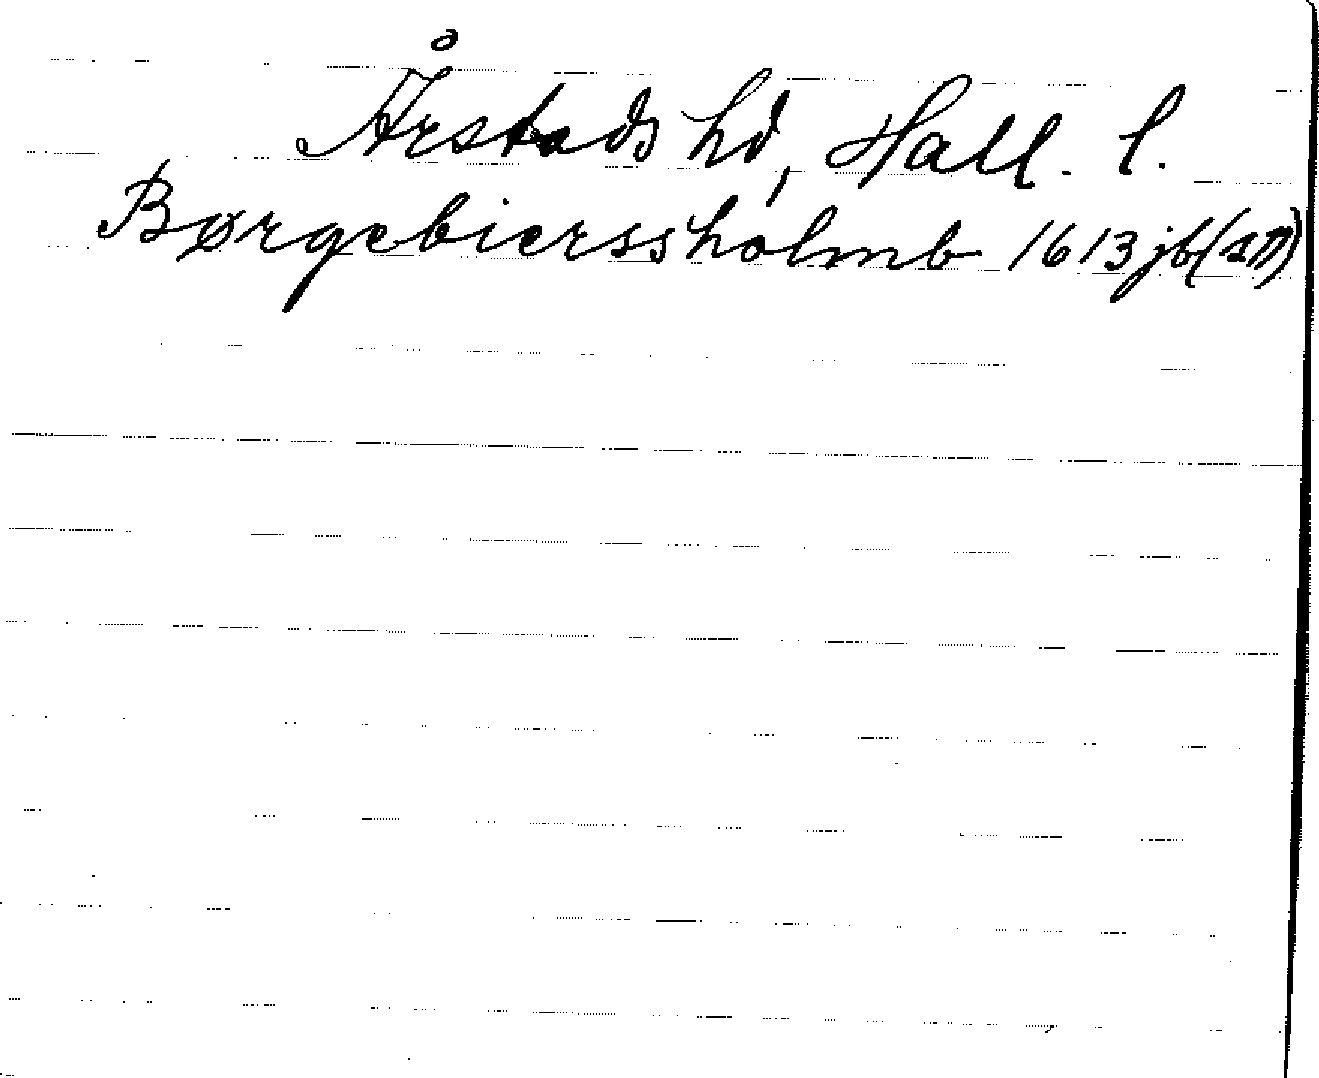 Årstads hd, Hall. l.
Børgebierssholmb 1613 jb(aM)